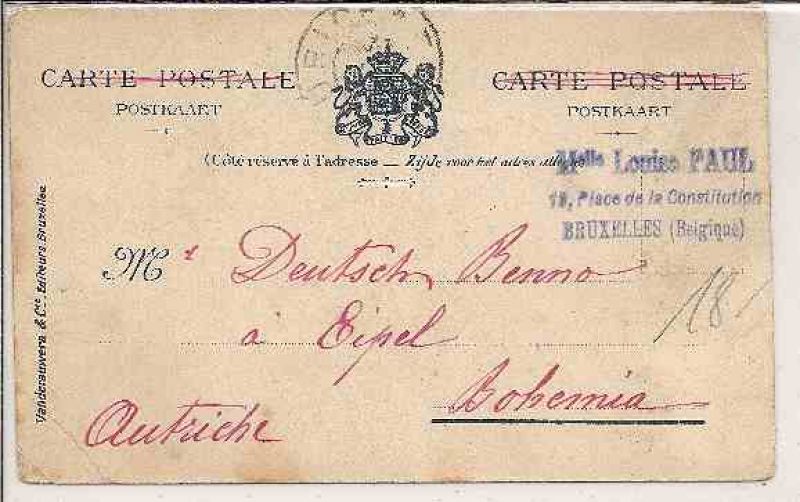 CARTE POSTALE CARTE POSTALE
POSTKAART POSTKAART
(Côté réservé à l'adresse — Zijde voor het adres
Melle Louise PAUL
18, Place de la Constitution
BRUXELLES (Belgique)
Mr Deutsch Benno
à Eipel
18
Bohemia
Autriche
Vanderauwera & Cie. Editeurs. Bruxelles